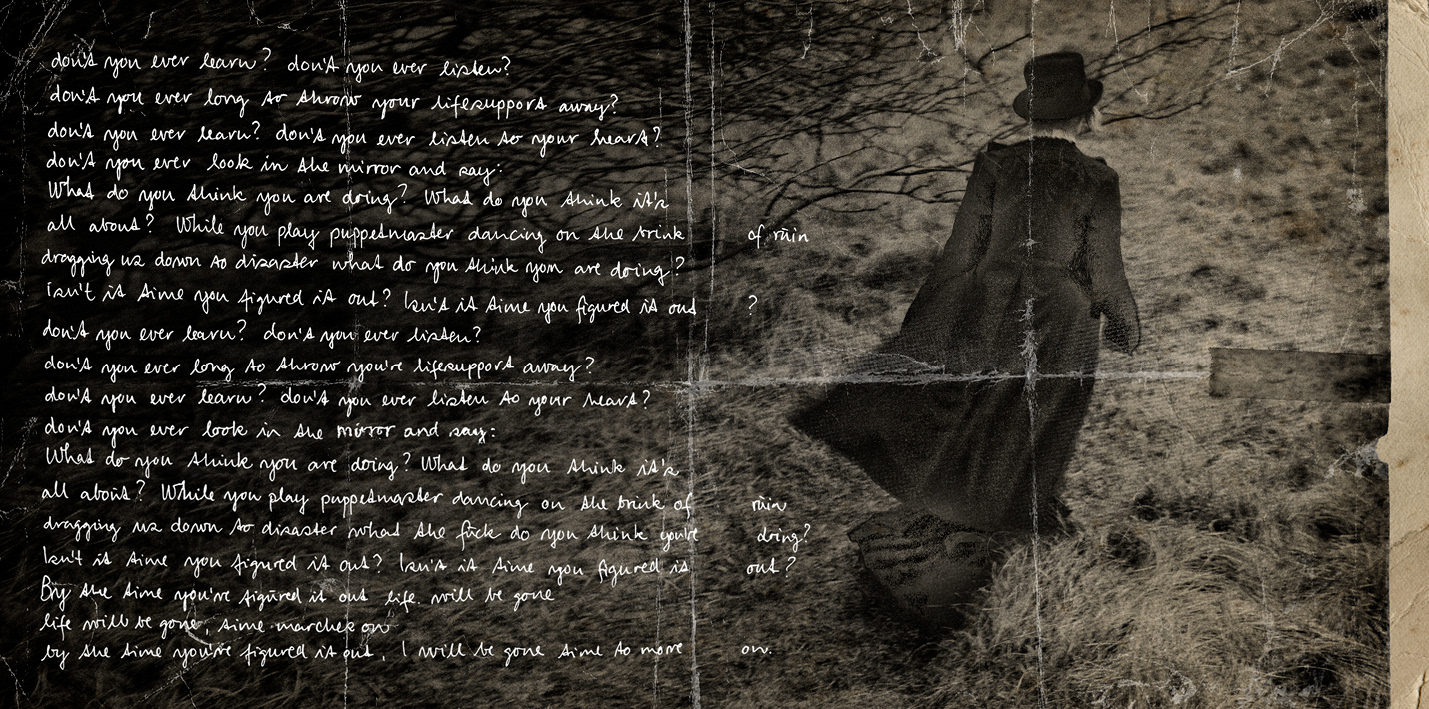 don't you ever learn? don't you ever listen?
don't you ever long to throw your lifesupport away?
don't you ever learn? don't you ever listen to your heart?
don't you ever look in the mirror and say:
What do you think you are doing? What do you think it's
all about? While you play puppetmaster dancing on the brink of ruin
dragging us down to disaster what do you think you are doing?
Isn't it time you figured it out? Isn't it time you figured it out ?
don't you ever learn? don't you ever listen?
don't you ever long to throw you're lifesupport away?
don't you ever learn? don't you ever listen to your heart?
don't you ever look in the mirror and say:
What do you think you are doing? What do you think it's
all about? While you play puppetmaster dancing on the brink of ruin
dragging us down to disaster what the fuck do you think you're doing?
Isn't it time you figured it out? Isn't it time you figured it out?
By the time you've figured it out life will be gone
life will be gone, time marches on
by the time you've figured it out, I will be gone time to move on.